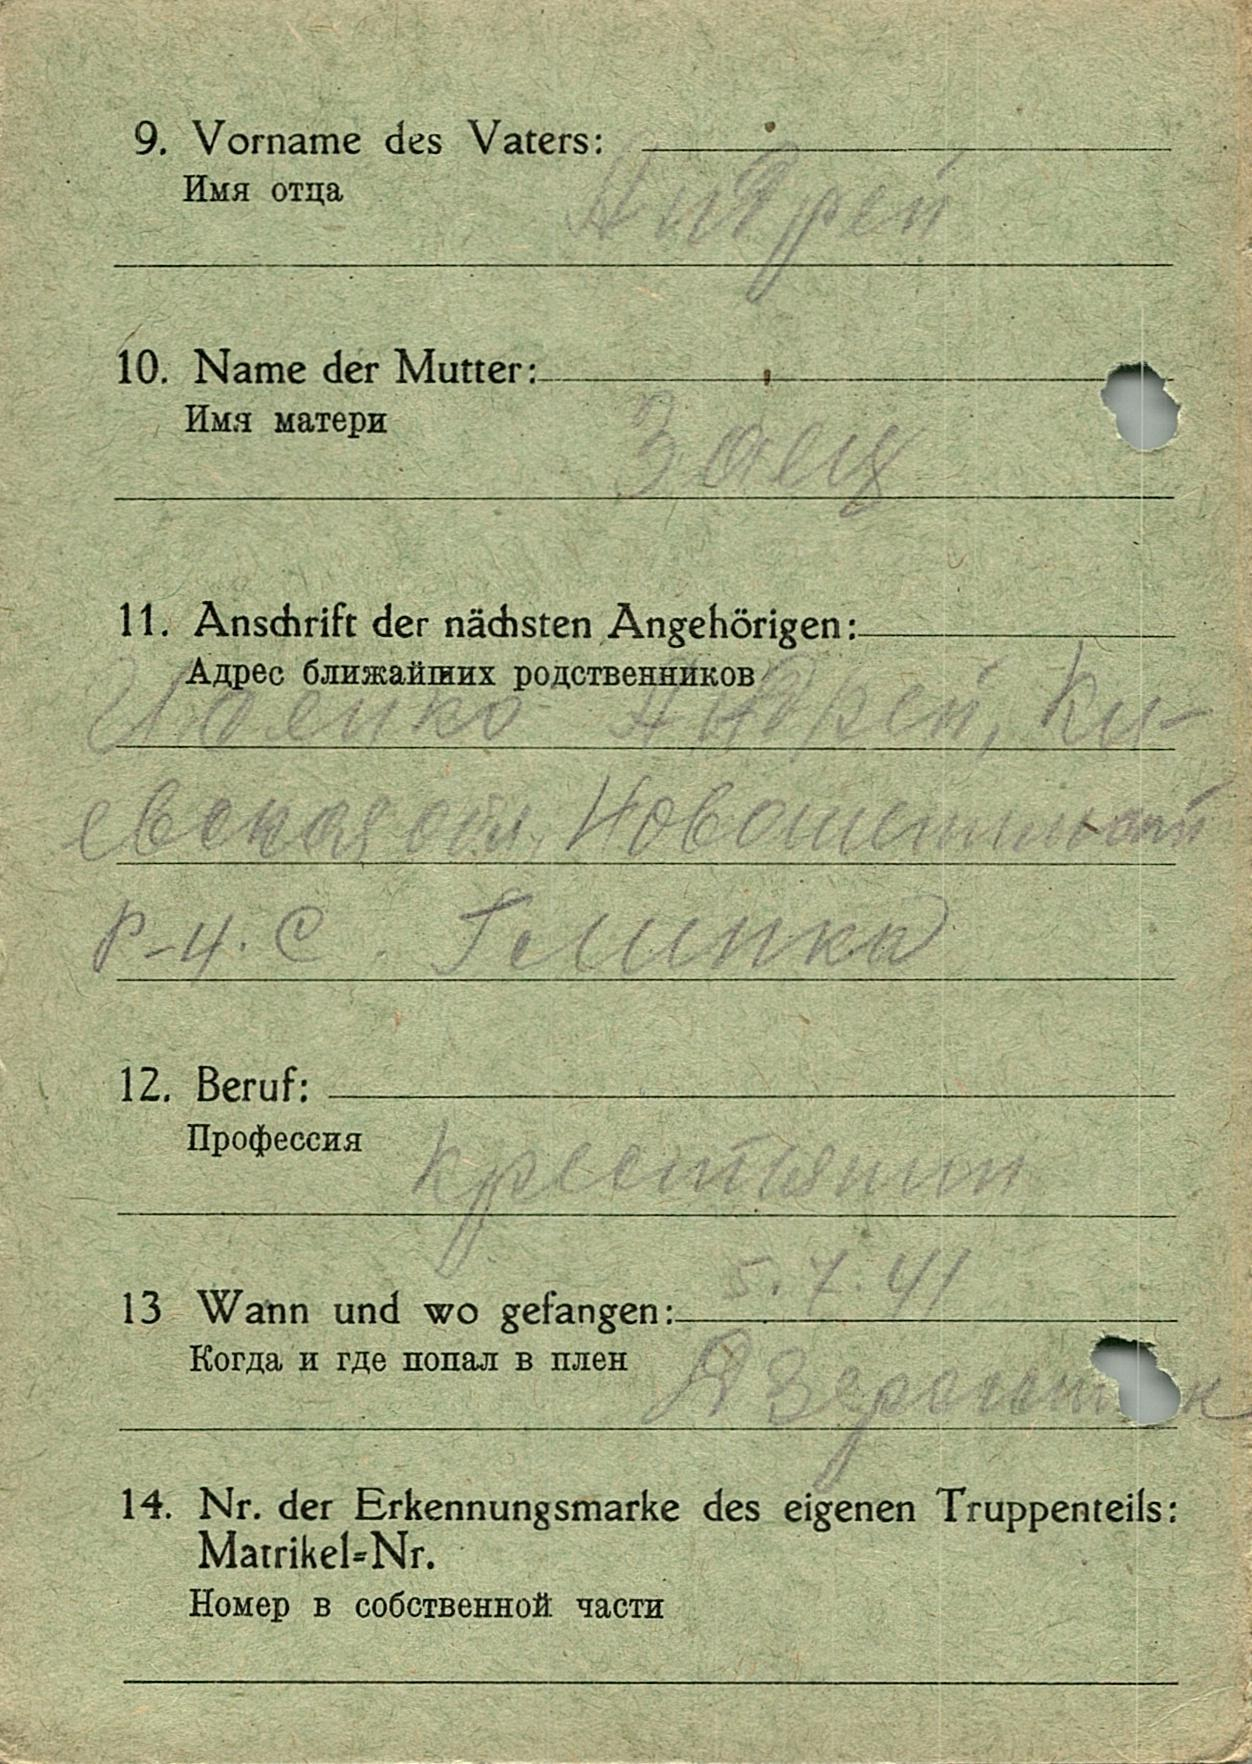 9. Vorname des Vaters:
Имя отца
Андрей
10. Name der Mutter:
Имя матери
Заец
11. Anschrift der nächsten Angehörigen:
Адрес ближайших родственников
Андрей, Ки-
евская обл,
р-н. с.
12. Beruf:
Профессия
крестьянин
5.7.41
13 Wann und wo gefangen:
Когда и где попал в плен
14. Nr. der Erkennungsmarke des eigenen Truppenteils:
Matrikel=Nr.
Номер в собственной части